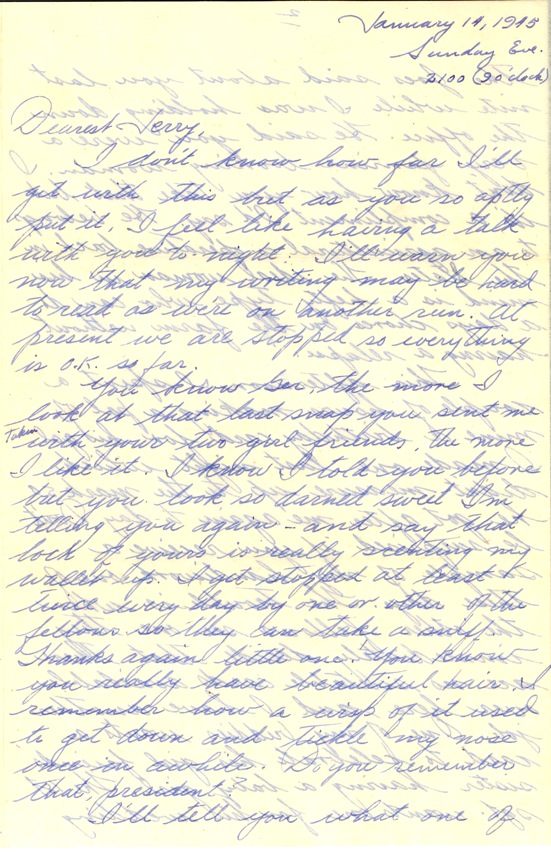 January 14, 1945
Sunday Eve.
2100 (9 o'clock)
Dearest Jerry,
I don't know how far I'll
get with this but as you so aptly
put it, I feel like having a talk
with you to night. I'll warn you
now that my writing may be hard
to read as were on another run. At
present we are stopped so everything
is O.K. so far.
You know Ger, the more I
look at that last snap you sent me
Taken
with your two girl friends, the more
I like it. I know I told you before
but you look so darnet sweet I'm
telling you again - and say that
lock of yours is really scenting my
wallet up. I get stopped at least
twice every day by one or other of the
fellows so they can take a sniff.
Thanks again little one. You know
you really have beautiful hair. I
remember how a wisp of it used
to get down and tickle my nose
once in awhile. Do you remember
that, president?
I'll tell you what one of